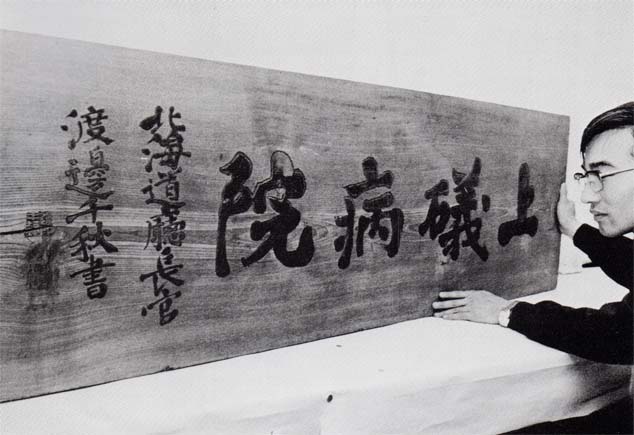 上磯病院
北海道廳長官
渡邊千秋書